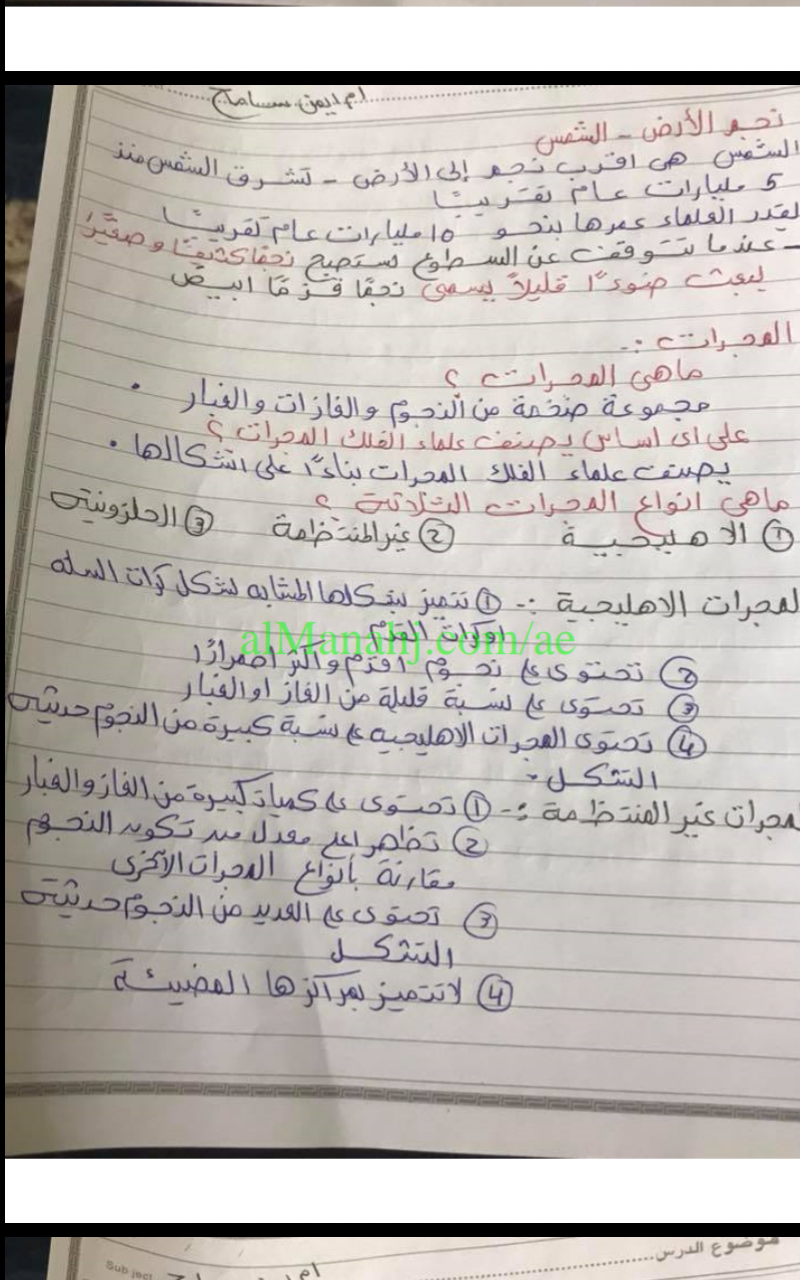 ام ايمن سماح
نجم الأرض - الشمس
الشمس هي اقرب نجم إلى الأرض - تشرق الشمس منذ
5 مليارات عام تقريبًا
يقدر العلماء عمرها بنحو 10 مليارات عام تقريبًا
- عندما تتوقف عن السطوع ستصبح نجمًا كثيفًا وصغيرًا
يبعث ضوءًا قليلاً يسمى نجمًا قزمًا ابيض
المجرات :-
ماهي المجرات ؟
مجموعة ضخمة من النجوم والغازات والغبار .
على اى اساس يصنف علماء الفلك المجرات ؟
يصنف علماء الفلك المجرات بناءًا على اشكالها .
ماهي انواع المجرات الثلاثة ؟
① الاهليجية ② غير المنتظمة ③ الحلزونية
المجرات الاهليجية :- ① تتميز بشكلها المشابه لشكل كرات السله
اوكرات القدم
alManahj.com/ae
② تحتوى على نجوم اقدم واكثر احمرارًا
③ تحتوى على نسبة قليلة من الغاز او الغبار
④ تحتوى المجرات الاهليجيه على نسبة كبيرة من النجوم حديثة
التشكل -
المجرات غير المنتظمة :- ① تحتوى على كميات كبيرة من الغاز والغبار
② تظهر اعلى معدل من تكوين النجوم
مقارنة بأنواع المجرات الأخرى
③ تحتوى على العديد من النجوم حديثة
التشكل
④ لا تتميز بمراكزها المضيئة
موضوع الدرس
Subject